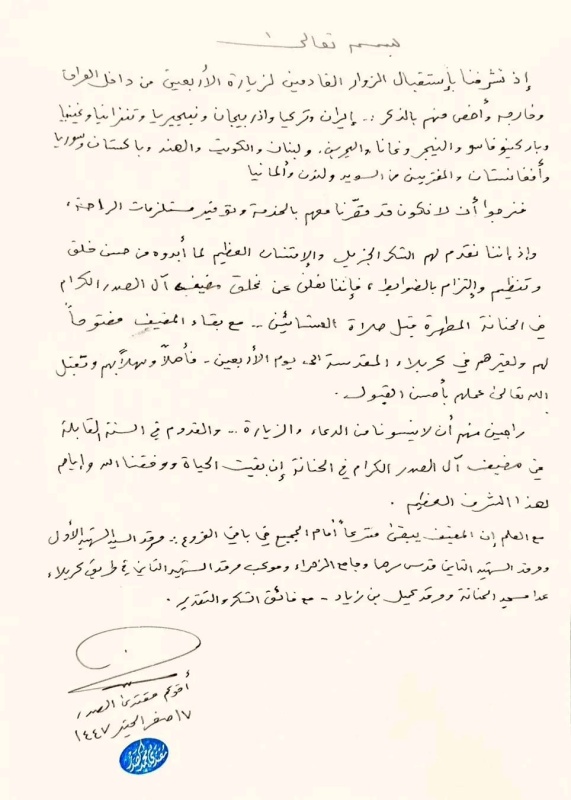 بسمه تعالى
إذ تشرفنا بإستقبال الزوار القادمين لزيارة الأربعين من داخل العراق
وخارجه وأخص منهم بالذكر :.. إيران وتركيا واذربيجان ونيجيريا وتنزانيا وغينيا
وباركينوفاسو والنيجر وغانا والبحرين. ولبنان والكويت والهند وباكستان وسوريا
وأفغانستان والمغتربين من السويد ولندن وألمانيا
فنرجوا أن لا نكون قد قصّرنا معهم بالخدمة وتوفير مستلزمات الراحة،
وإذ إننا نقدم لهم الشكر الجزيل والإمتنان العظيم لما أبدوه من حسن خلق
وتنظيم وإلتزام بالضوابط، فإننا نعلن عن غلق مضيف آل الصدر الكرام
في الحنانة المطهرة قبل صلاة العشائين .. مع بقاء المضيف مفتوحاً
لهم ولغيرهم في كربلاء المقدسة الى يوم الأربعين - فأهلاً وسهلاً بهم وتقبل
الله تعالى عملهم بأحسن القبول .
راجين منهم أن لا ينسونا من الدعاء والزيارة .. والقدوم في السنة المقابلة
في مضيف آل الصدر الكرام في الحنانة إن بقيت الحياة ووفقنا الله وإياهم
لهذا الشرف العظيم .
مع العلم إن المضيف يبقى مشرعاً أمام الجميع في باقي الفروع :. مرقد السيد الشهيد الأول
ومرقد الشهيد الثاني قدس سرهما وجامع الزهراء وموكب مرقد الشهيد الثاني في طريق كربلاء
عدا مسجد الحنانة ومرقد كميل بن زياد - مع فائق الشكر والتقدير .
مقتدى الصدر
١٧ صفر الخير ١٤٤٧